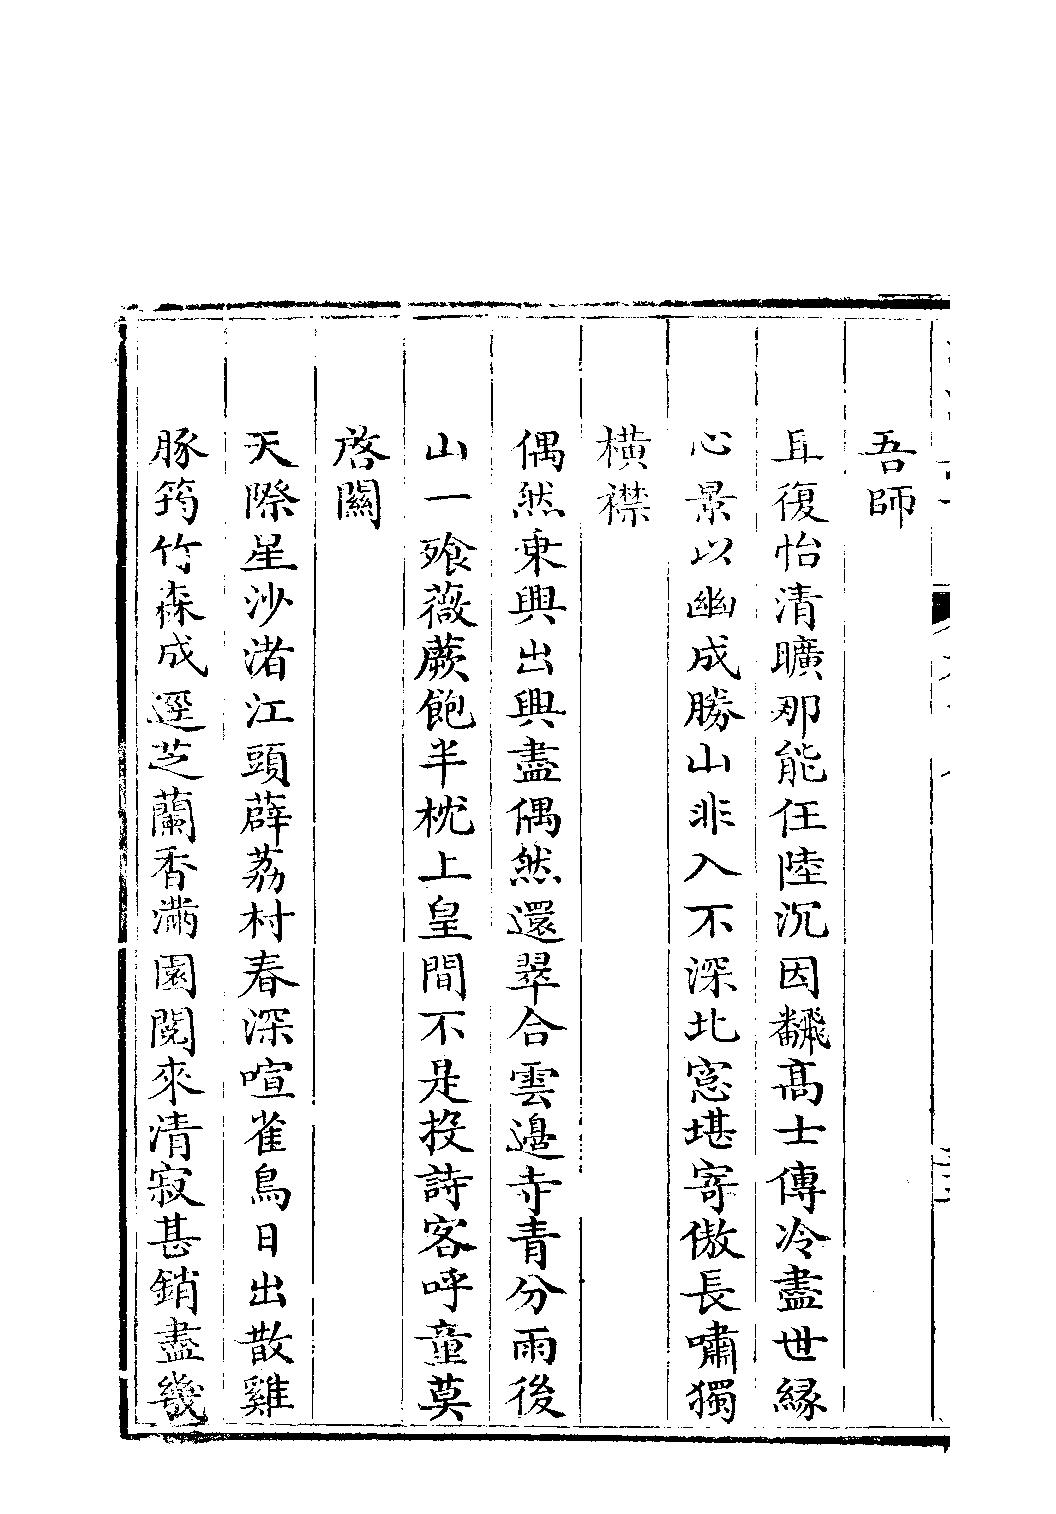 吾師
且復怡清曠那能任陸沉因飜髙士傳冷盡世縁
心景以幽成勝山非入不深北窓堪寄傲長嘯獨
橫襟
偶然乗興出興盡偶然還翠合雲邉寺青分雨後
山一飱薇蕨飽半枕上皇間不是投詩客呼童莫
啓關
天際星沙渚江頭薜荔村春深喧雀鳥日出散雞
豚筠竹森成逕芝蘭香滿園閱來清寂甚銷盡幾